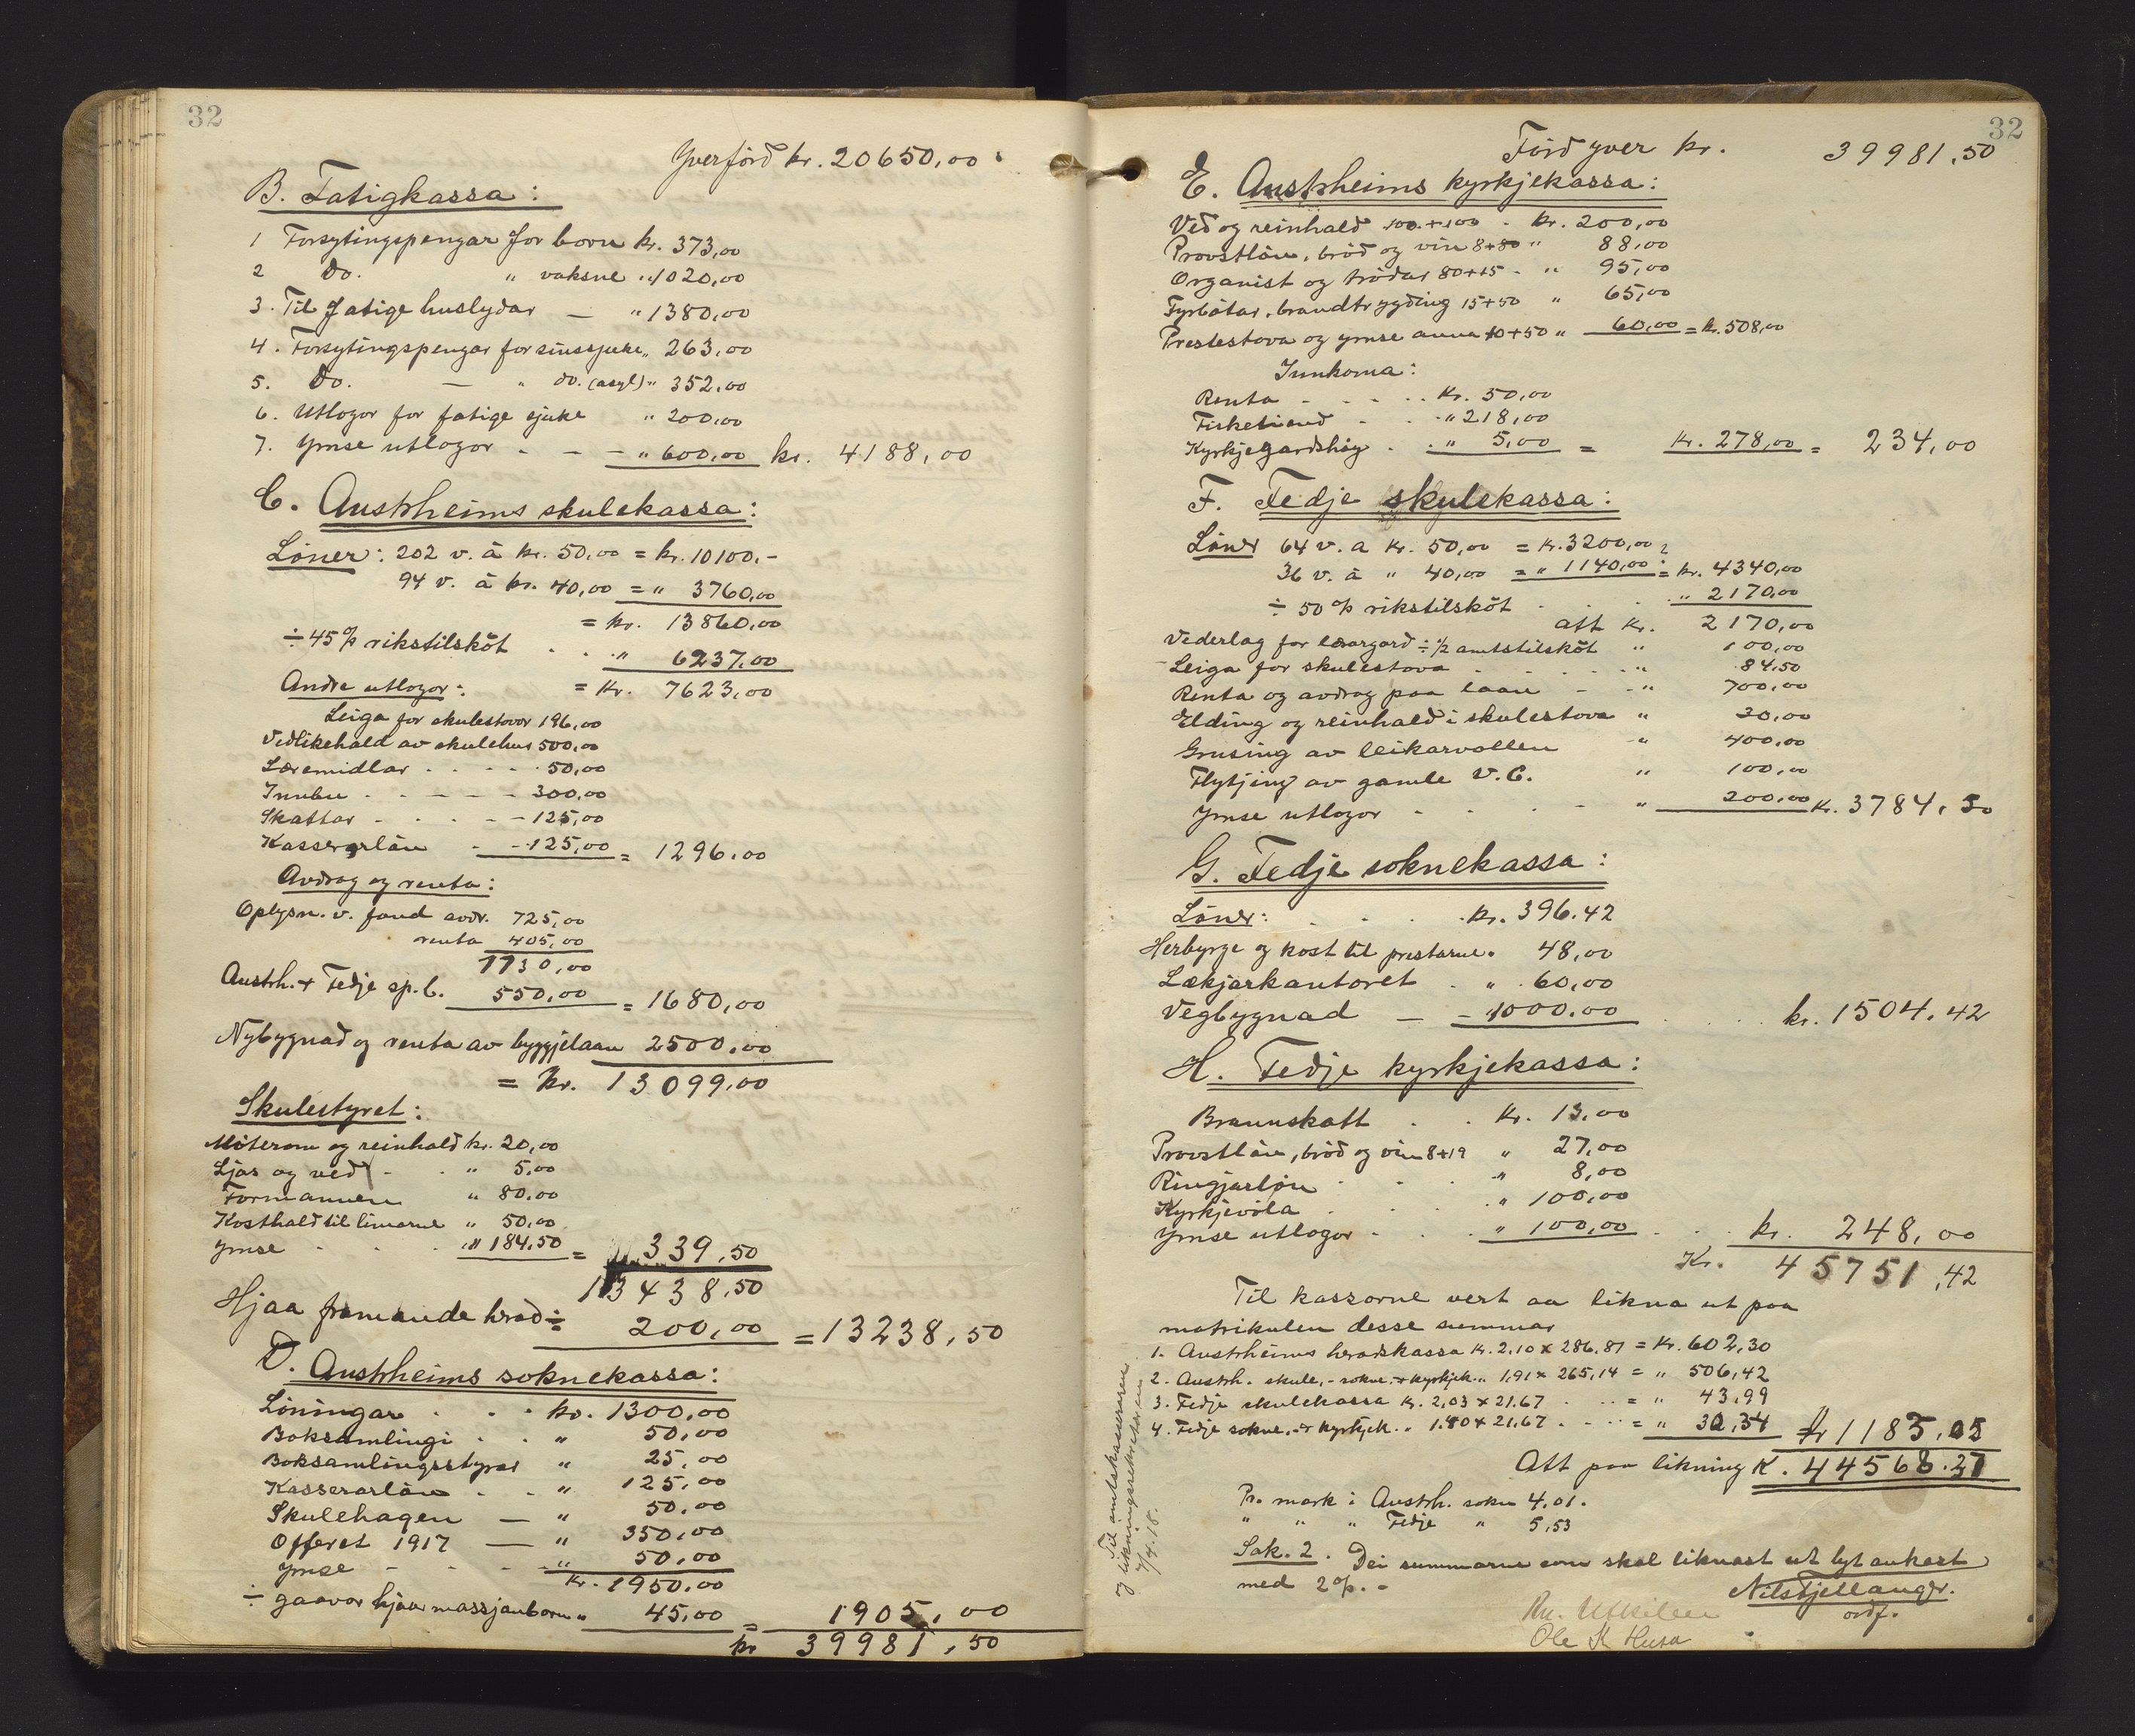 32
Yverförd kr. 20650,00
B. Fatigkassa:
1 Forsytingspengar for born kr. 373,00
2 Do. " vaksne " 1020,00
3. Til fatige huslydar — " 1380,00
4. Forsytingspengar for sinssjuke " 263,00
5. Do. — " do. (asyl) " 352,00
6. Utlogor for fatige sjuke " 200,00
7. Ymse utlogor . - - " 600,00 kr. 4188,00
C. Austrheims skulekassa:
Löner: 202 v. à kr. 50,00 = kr. 10100.-
94 v. à kr. 40,00 = " 3760,00
= kr. 13860,00
÷ 45 % rikstilsköt . . " 6237,00
= Kr. 7623,00
Andre utlogor:
Leiga for skulestovor 196,00
Vedlikehald av skulehus 500,00
Læremidlar . . . . 50,00
Innbu . - - - - 300,00
Skattar - - . - - 125,00
Kasserarlön - - 125,00 = 1296,00
Avdrag og renta:
Oplysn. v. fond avdr. 725,00
renta 405,00
1130,00
Austrh. + Fedje sp. b. 550,00 = 1680,00
Nybygnad og renta av byggjelaan 2500,00
= Kr. 13099,00
Skulestyret:
Möterom og reinhald kr. 20,00
Ljos og ved - . " 5,00
Formannen " 80,00
Kosthald til limarne " 50,00
Ymse . . . " 184,50 = 339,50
13438,50
Hjaa framande herad ÷ 200,00 = 13238,50
D. Austrheims soknekassa:
Löningar . . . kr. 1300,00
Boksamlingi . . " 50,00
Boksamlingsstyrar " 25,00
Kasserarlön . . " 125,00
Skulehagen — " 50,00
Offeret 1917 — " 350,00
Ymse - - - - " 50,00
Kr. 1950,00
÷ gaavor hjaa massjanborn " 45,00 = 1905,00
kr 39981,50
32
Förd yver kr. 39981,50
E. Austrheims kyrkjekassa:
Ved og reinhald 100+100 - kr. 200,00
Provstlön, bröd og vin 8+80 " 88,00
Organist og trödar 80+15 - " 95,00
Fyrbötar, brandtrygding 15+50 " 65,00
Prestestova og ymse anna 10+50 " 60,00 = kr. 508,00
Innkoma:
Renta - - - . . Kr. 50,00
Fisketiend - . . " 218,00
Kyrkjegardshög . . " 5,00 = Kr. 278,00 = 234,00
F. Fedje skulekassa:
Löner 64 v. a Kr. 50,00 = Kr. 3200,00
36 v. à " 40,00 = " 1140,00 = kr. 4340,00
÷ 50 % rikstilsköt . . . . " 2170,00
att Kr. 2170,00
Vederlag for lærargard ÷ 1/2 amtstilsköt " 100,00
Leiga for skulestova . . . . " 84,50
Renta og avdrag paa laan - - " 700,00
Elding og reinhald i skulestova " 30,00
Grusing av leikarvollen " 400,00
Flytjing av gamle V.C. " 100,00
Ymse utlogor - . - - " 200,00 Kr. 3784,50
G. Fedje soknekassa:
Löner: . . . . kr. 396.42
Herbyrge og kost til prestarne " 48,00
Lækjarkantoret . " . 60,00
Vegbygnad — - 1000,00 . . . kr. 1504,42
H. Fedje kyrkjekassa:
Brannskatt . . Kr. 13,00
Provstlön, bröd og vin 8+19 " 27,00
Ringjarlön . . . " 8,00
Kyrkjevöla . . . " 100,00
Ymse utlogor . . . " 100,00 . . kr. 248,00
Kr. 45751,42
Til kassorne vert aa likna ut paa
matrikulen desse summar
1. Austrheims heradskassa Kr. 2,10 x 286,81 = Kr. 602,30
2. Austrh. skule, - sokne, + kyrkjek. " 1,91 x 265,14 = " 506,42
3. Fedje skulekassa Kr. 2,03 x 21.67 . . . = " 43,99
4. Fedje sokne, + kyrkjek. " 1.40 x 21.67 . - . . = " 30,34 kr 1183,05
Att paa likning K. 44568.37
Pr. mark i Austrh. sokn 4.01.
" " " Fedje " 5,53
Sak. 2. Dei summarne som skal liknast ut lyt aukast
med 2 %. -
Nils Fjellanger.
ordf.
Ole K Husa
Til amtskasseraren
og likningssekretæren
7/4.18.